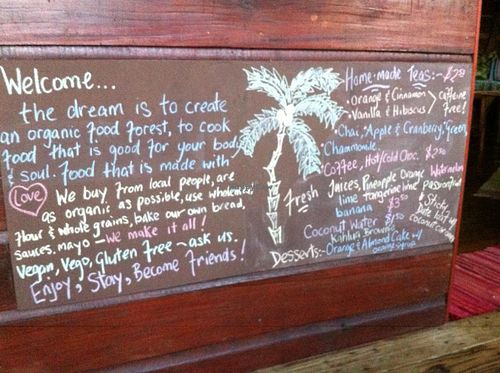 Welcome...
the dream is to create
an organic food forest, to cook
food that is good for your body
& soul. food that is made with
Love We buy from local people, are
as organic as possible, use wholemeal
flour & whole grains, bake our own bread,
sauces, mayo - we make it all!
Vegan, Vego, Gluten Free - ask us.
Enjoy, Stay, Become Friends!
Home-made Teas:-
• Orange & Cinnamon
• Vanilla & Hibiscus
caffeine
free!
• Chai, Apple & Cranberry, Green,
Chammomile.
Coffee, Hot/Cold Choc.
Fresh
Juices, Pineapple Orange Watermelon
lime tangerine passionfruit
banana
Coconut Water
Kahlua Brownie
Desserts:- Orange & Almond Cake w/
Sticky
Date
coconut